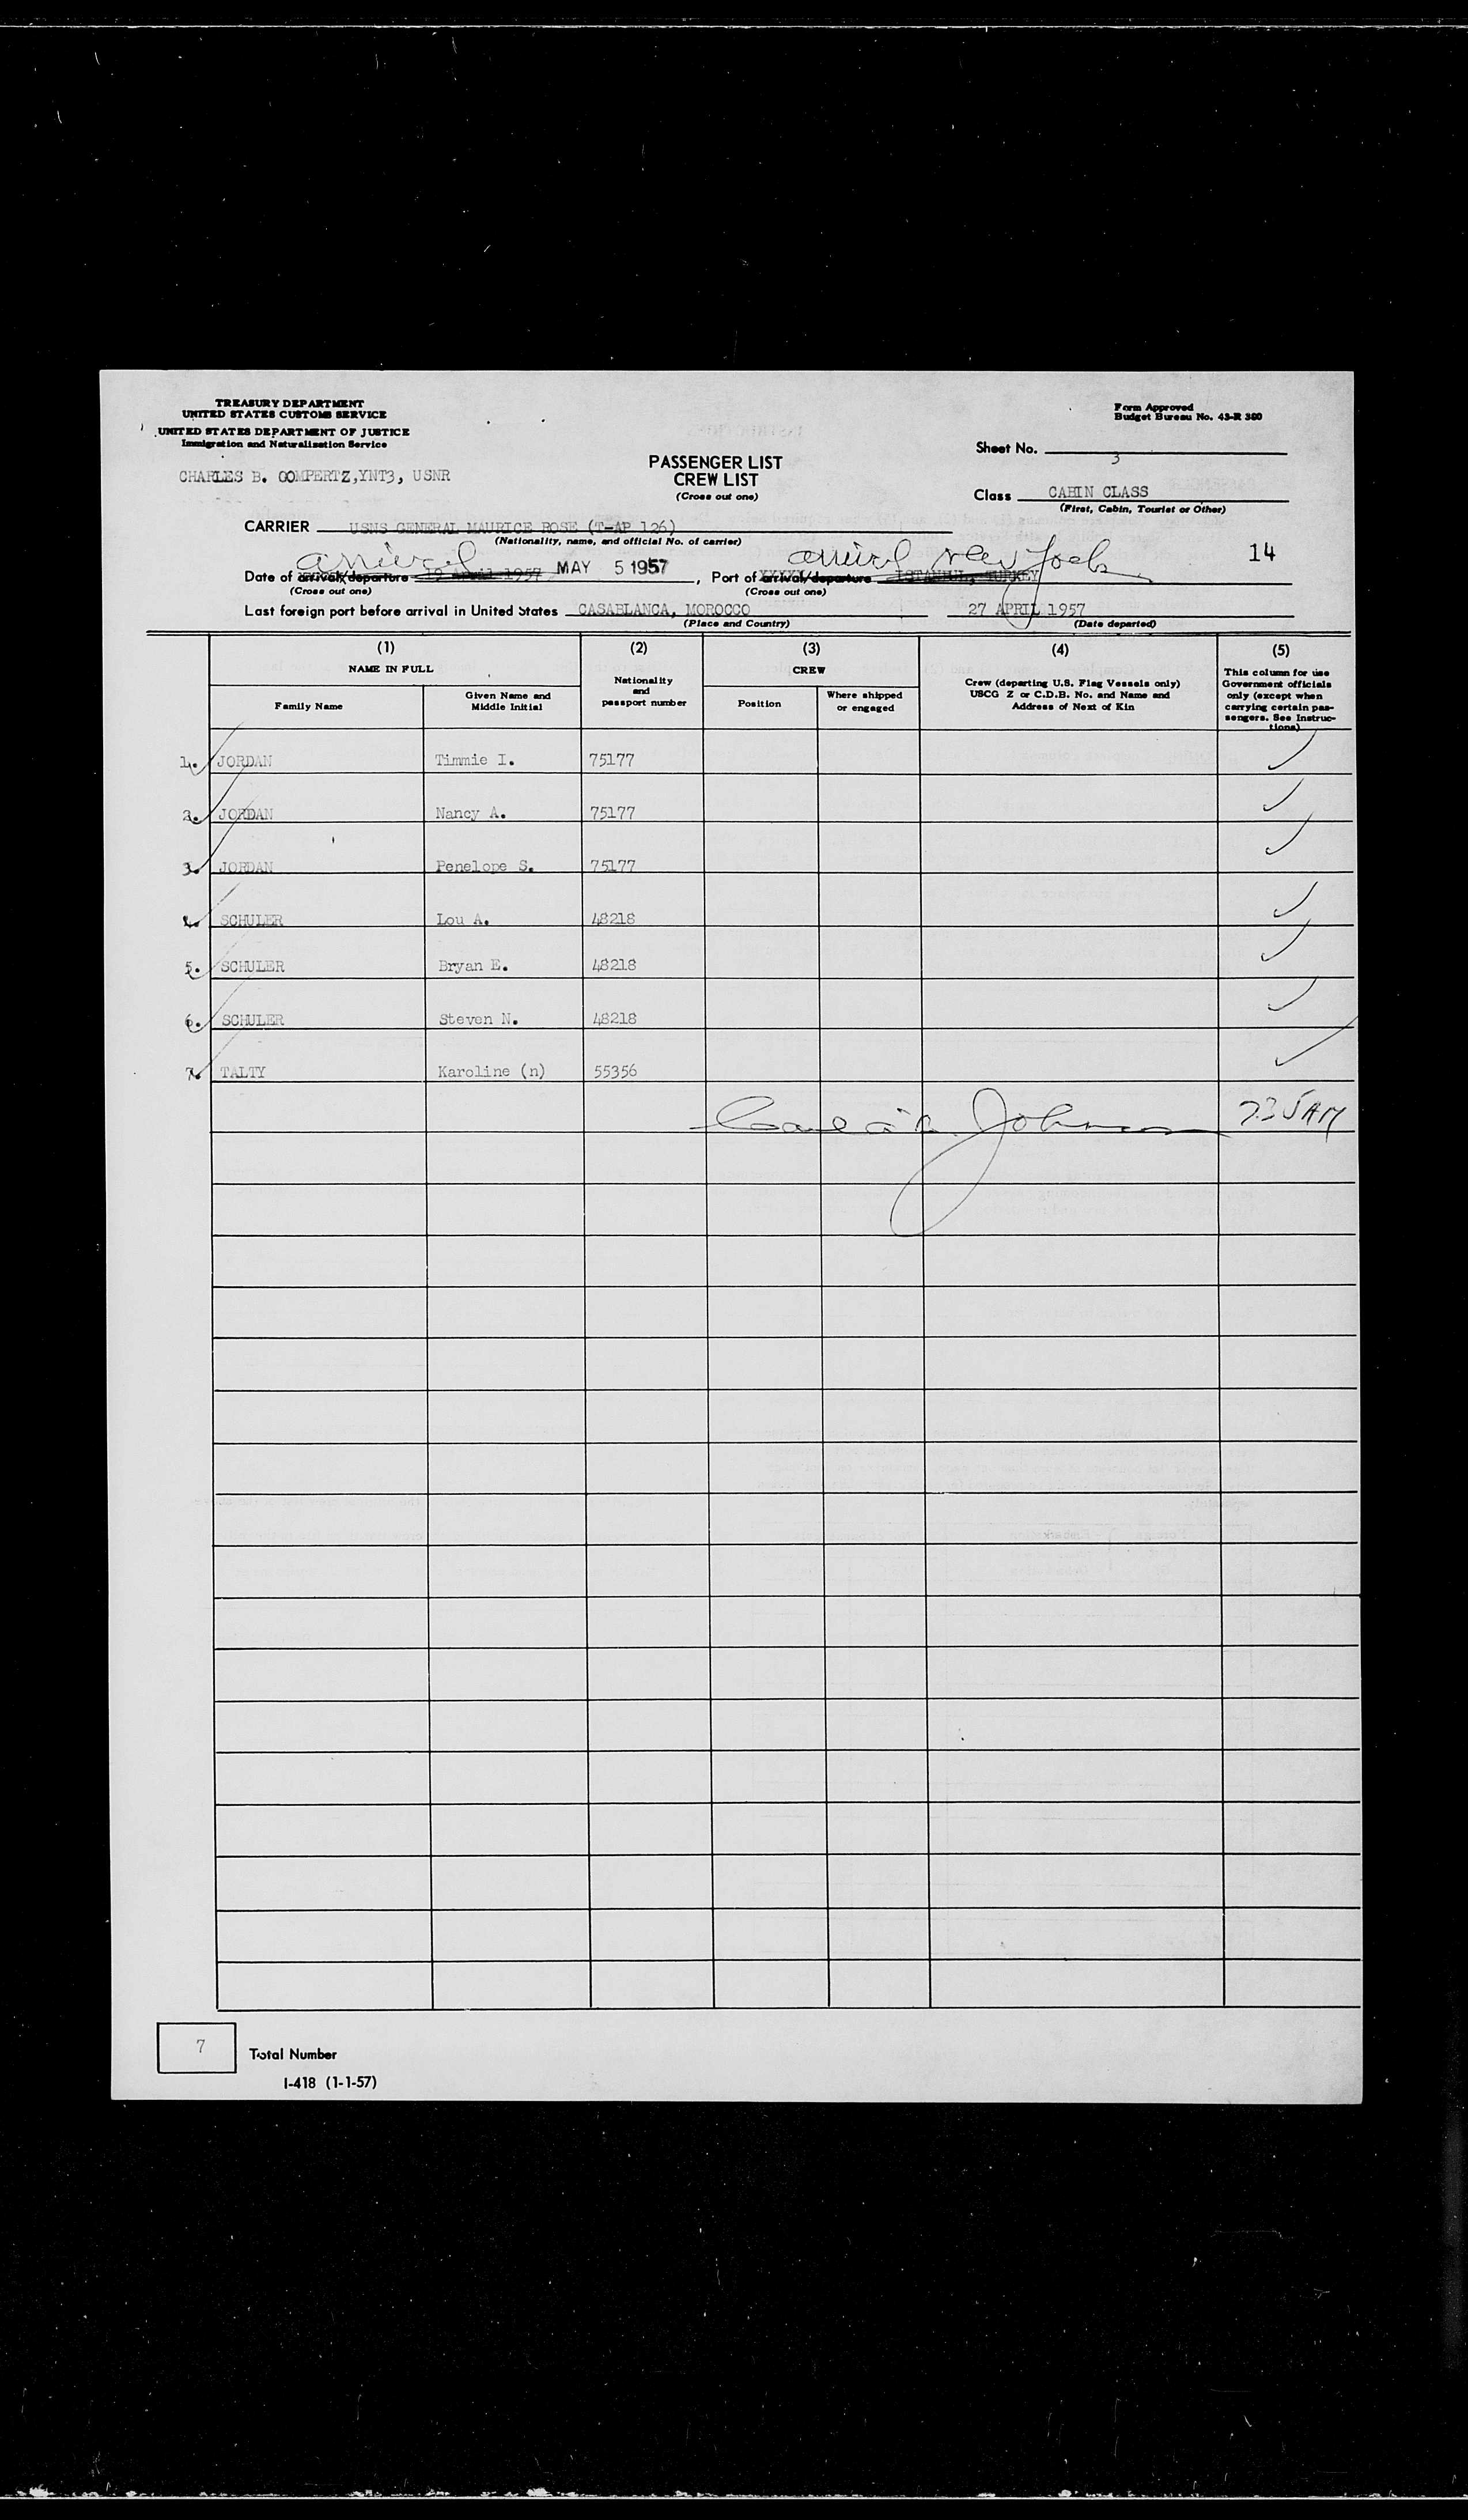 TREASURY DEPARTMENT
UNITED STATES CUSTOMS SERVICE
UNITED STATES DEPARTMENT OF JUSTICE
Immigration and Naturalization Service
Form Approved
Budget Bureau No. 43-R 380
CHARLES B. GOMPERTZ,YNT3, USNR
PASSENGER LIST
CREW LIST
(Cross out one)
Sheet No. 3
Class CABIN CLASS
(First, Cabin, Tourist or Other)
CARRIER USNS GENERAL MAURICE ROSE (T-AP 126)
(Nationality, name, and official No. of carrier)
arrival arrival New York 14
Date of arrival/departure 19 April 1957 MAY 5 1957, Port of arrival/departure ISTANBUL, TURKEY
(Cross out one) (Cross out one)
Last foreign port before arrival in United States CASABLANCA, MOROCCO 27 APRIL 1957
(Place and Country) (Date departed)
(1) (2) (3) (4) (5)
NAME IN FULL
Family Name
Given Name and Middle Initial
Nationality and passport number
CREW
Position
Where shipped or engaged
Crew (departing U.S. Flag Vessels only)
USCG Z or C.D.B. No. and Name and
Address of Next of Kin
This column for use
Government officials
only (except when
carrying certain pas-
sengers. See Instruc-
tions)
1. JORDAN Timmie I. 75177
2. JORDAN Nancy A. 75177
3. JORDAN Penelope S. 75177
4. SCHULER Lou A. 48218
5. SCHULER Bryan E. 48218
6. SCHULER Steven N. 48218
7. TALTY Karoline (n) 55356
Johnson 735AM
7 Total Number
I-418 (1-1-57)